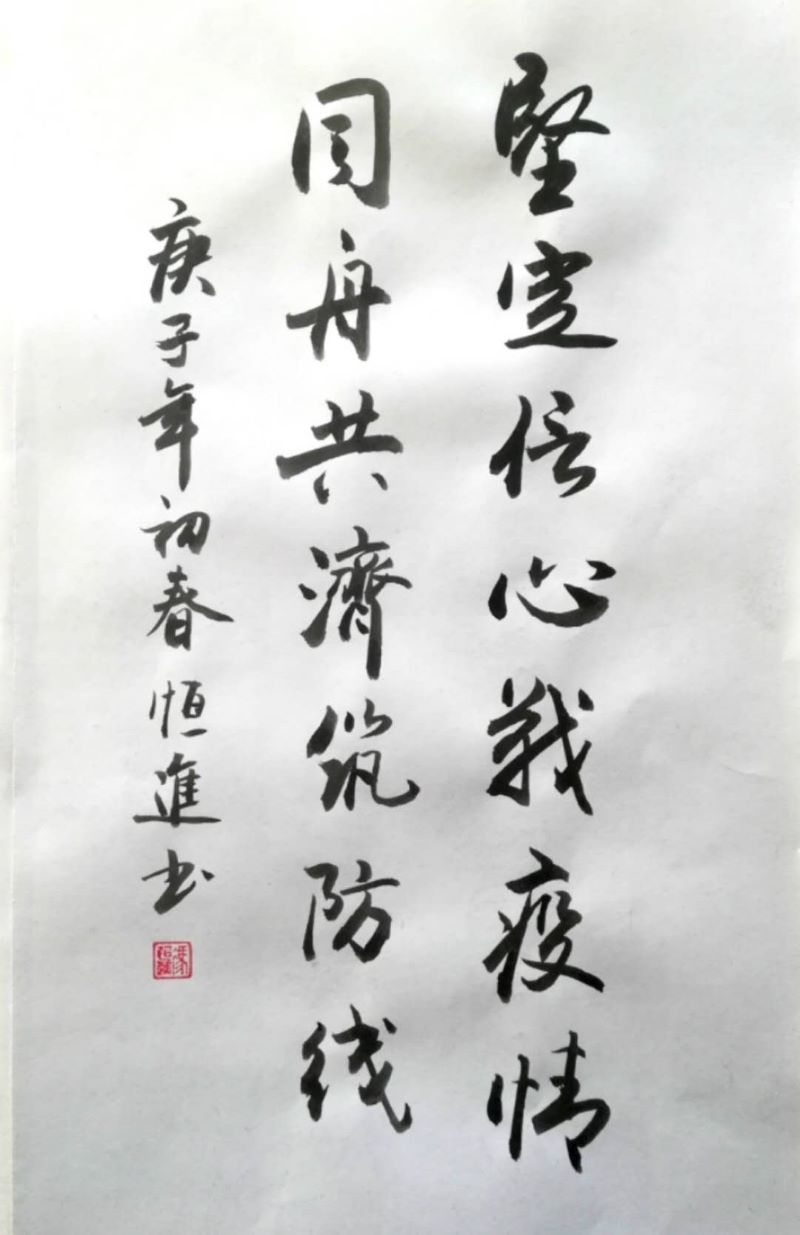 堅定信心戰疫情
同舟共濟筑防线
庚子年初春恒進书